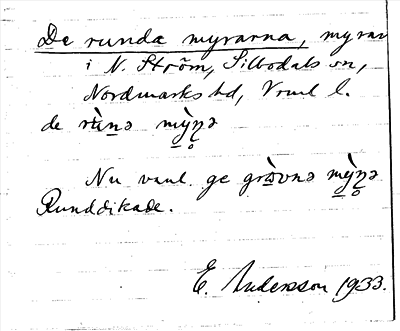 De runda myrarna, myrar
i N. Ström, Silbodals sn,
Nordmarks hd, Vrml l.
de rùnə mỳn̥ə
Nu vanl. ge gròvnə mỳn̥ə
Runddikade.
E. Andersson 1933.